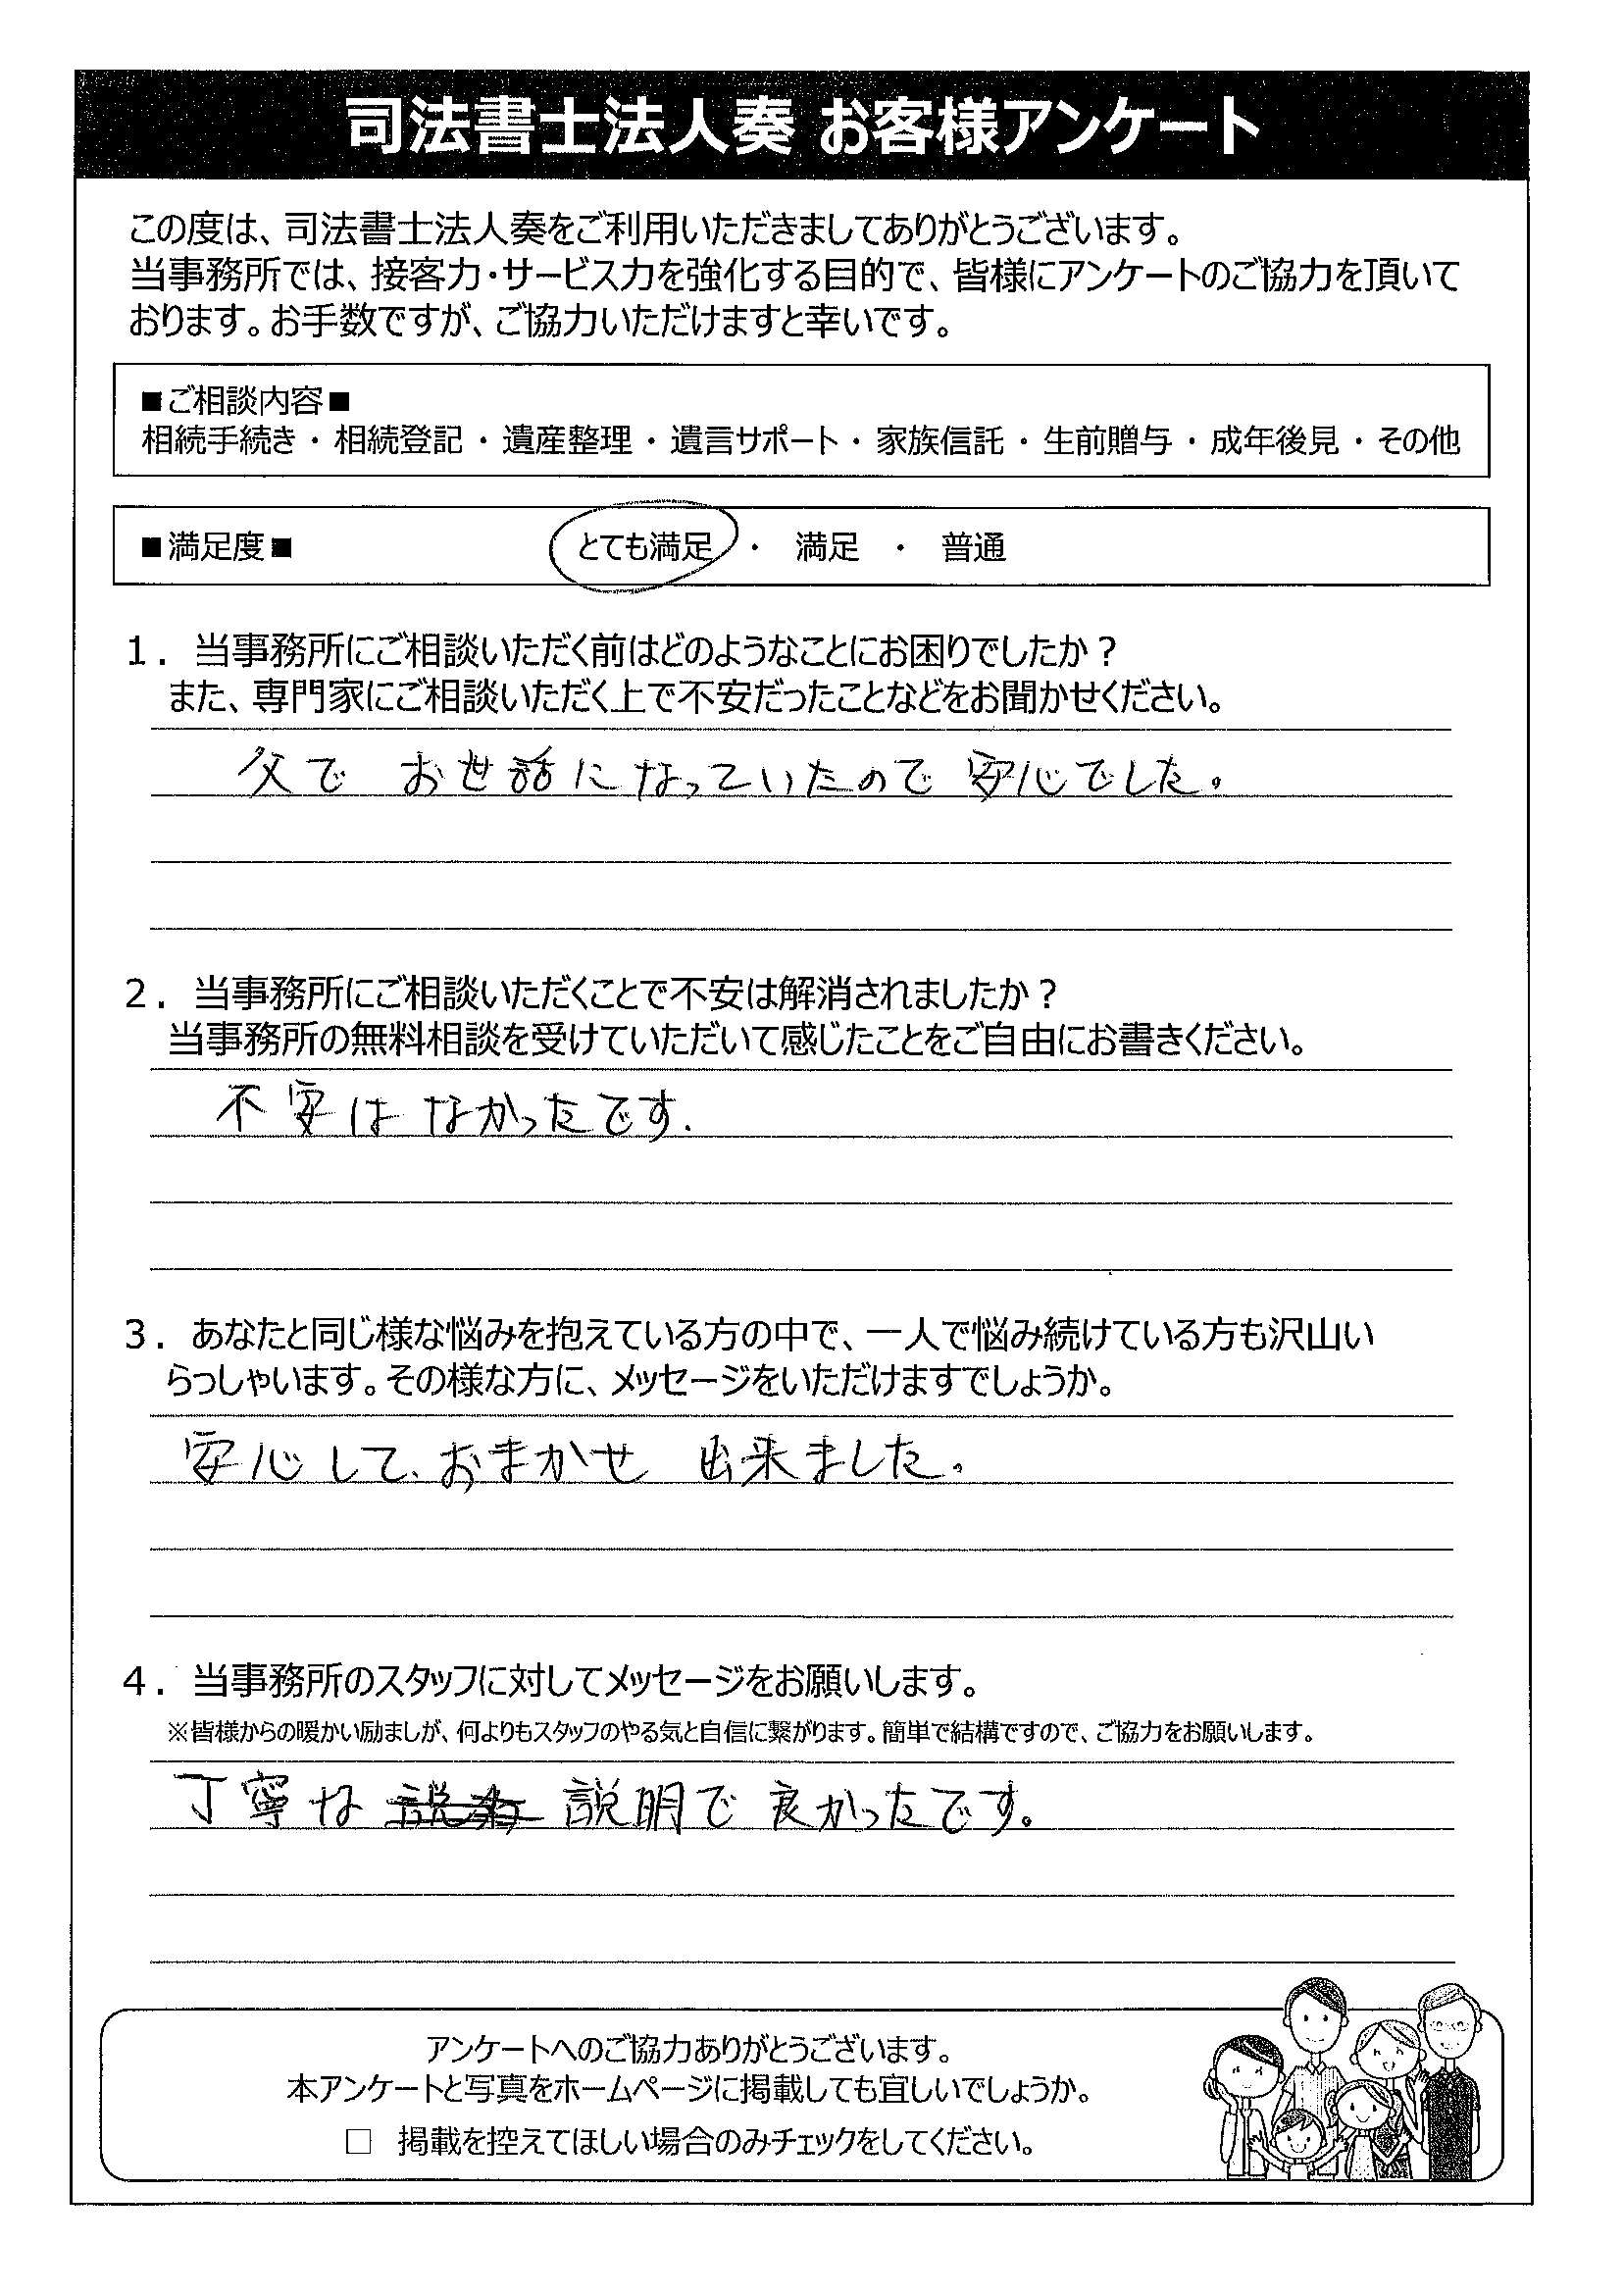 司法書士法人奏 お客様アンケート
この度は、司法書士法人奏をご利用いただきましてありがとうございます。
当事務所では、接客力・サービス力を強化する目的で、皆様にアンケートのご協力を頂いて
おります。お手数ですが、ご協力いただけますと幸いです。
■ご相談内容■
相続手続き・相続登記・遺産整理・遺言サポート・家族信託・生前贈与・成年後見・その他
■満足度■ とても満足 ・ 満足 ・ 普通
1. 当事務所にご相談いただく前はどのようなことにお困りでしたか？
また、専門家にご相談いただく上で不安だったことなどをお聞かせください。
父で お世話になっていたので 安心でした。
2. 当事務所にご相談いただくことで不安は解消されましたか？
当事務所の無料相談を受けていただいて感じたことをご自由にお書きください。
不安は なかったです.
3. あなたと同じ様な悩みを抱えている方の中で、一人で悩み続けている方も沢山い
らっしゃいます。その様な方に、メッセージをいただけますでしょうか。
安心して、おまかせ 出来ました。
4. 当事務所のスタッフに対してメッセージをお願いします。
※皆様からの暖かい励ましが、何よりもスタッフのやる気と自信に繋がります。簡単で結構ですので、ご協力をお願いします。
丁寧な 説明で 良かったです。
アンケートへのご協力ありがとうございます。
本アンケートと写真をホームページに掲載しても宜しいでしょうか。
□ 掲載を控えてほしい場合のみチェックをしてください。